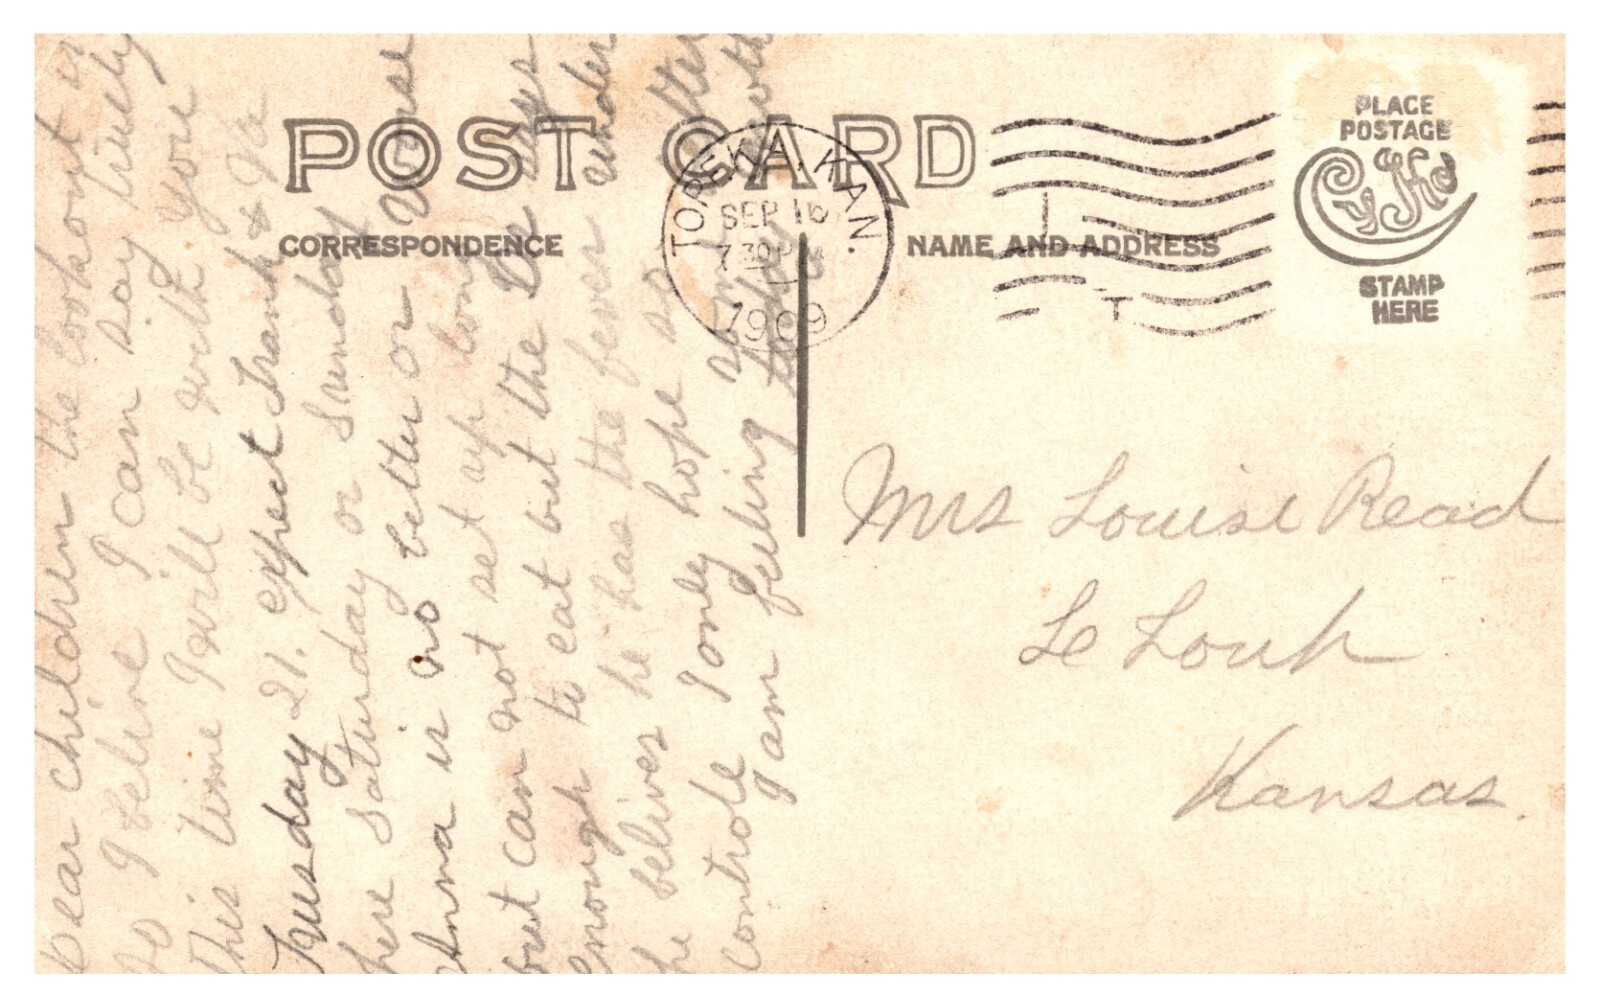 POST CARD
CORRESPONDENCE
NAME AND ADDRESS
PLACE
POSTAGE
STAMP
HERE
TOPEKA, KAN.
SEP 16
7 30 P M
1909
T
Dear children the lookout is
so I beline I can say surely
This time I will be with you
Tuesday 21. expect Frank & Va
here Saturday or Sunday
Anna is no better or worse
but can not set up long
enough to eat but the Dr says
he belives he has the fever under
controle I only hope so
I am feeling today
Mrs Louise Read
Le Louh
Kansas.